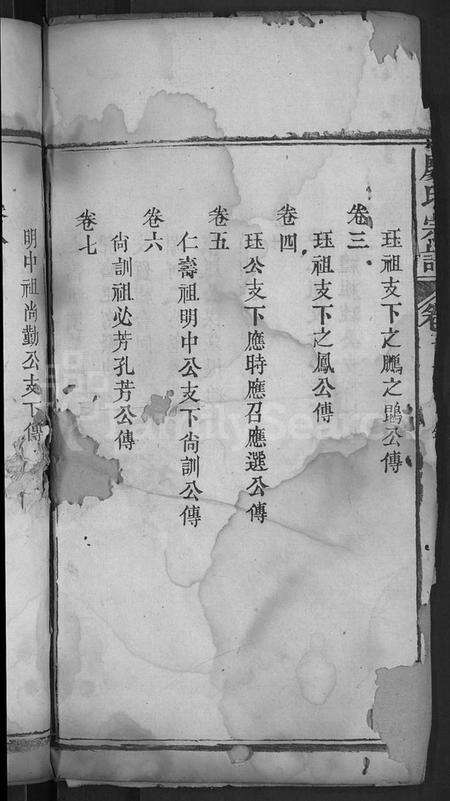 氏宗譜
珏祖支下之鵬之鵾公傳
卷三
珏祖支下之鳳公傳
卷四
珏公支下應時應召應選公傳
卷五
仁壽祖明中公支下尚訓公傳
卷六
尚訓祖必芳孔芳公傳
卷七
明中祖尚勤公支下傳